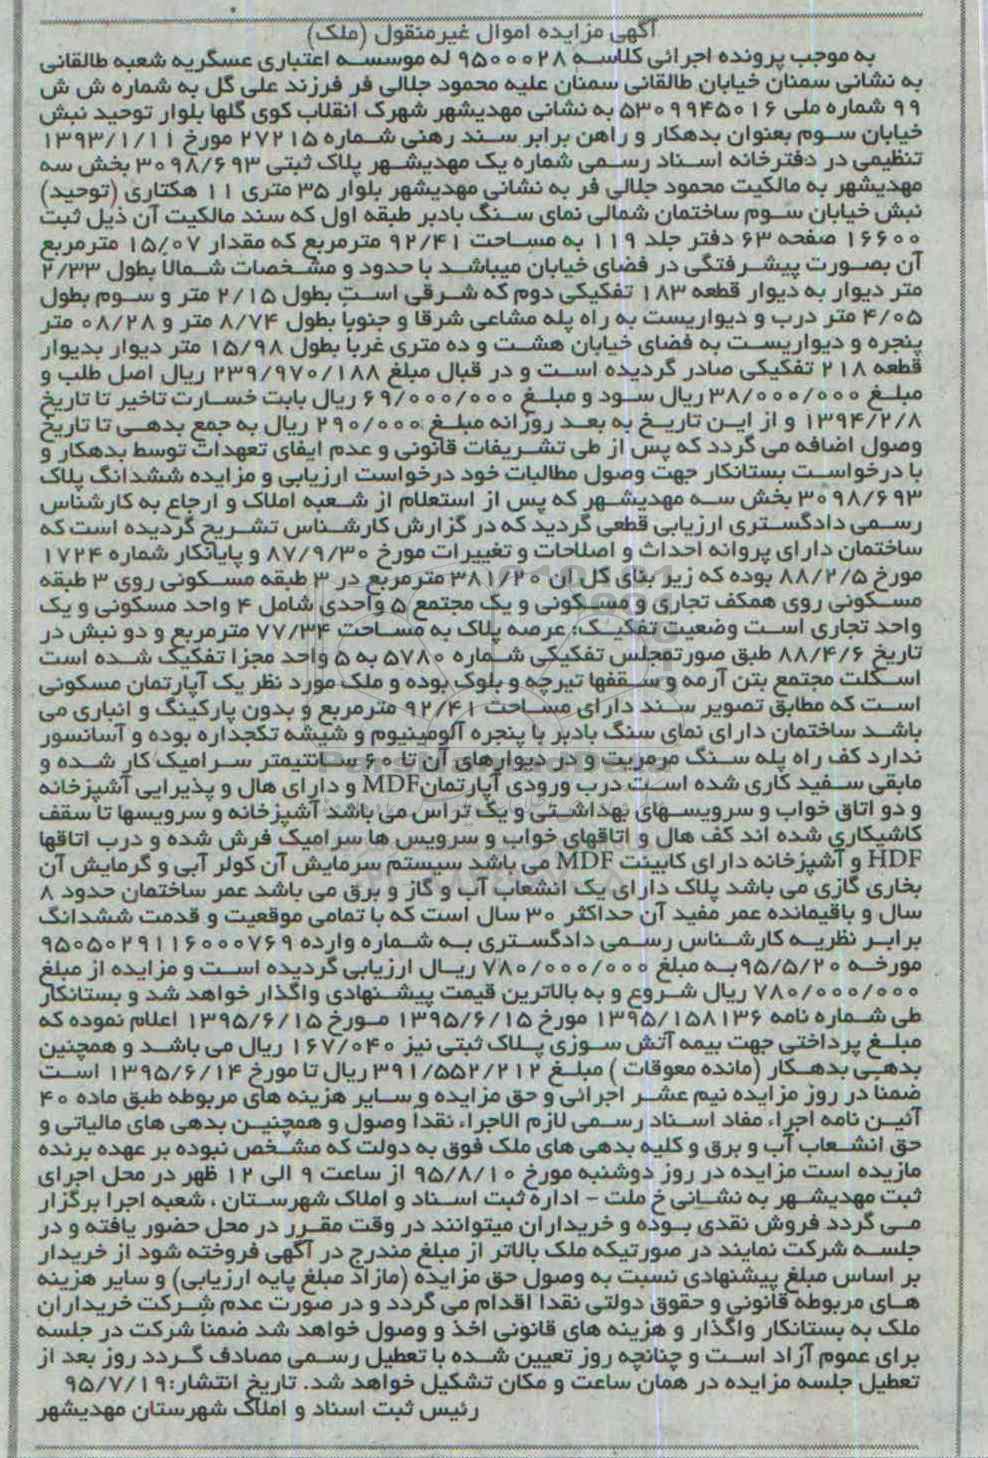 آگهی مزایده اموال غیرمنقول (ملک)
به موجب پرونده اجرائی کلاسه ۹۵۰۰۰۲۸ له موسسه اعتباری عسگریه شعبه طالقانی
به نشانی سمنان خیابان طالقانی سمنان علیه محمود جلالی فر فرزند علی گل به شماره ش ش
۹۹ شماره ملی ۵۳۰۹۹۴۵۰۱۶ به نشانی مهدیشهر شهرک انقلاب کوی گلها بلوار توحید نبش
خیابان سوم بعنوان بدهکار و راهن برابر سند رهنی شماره ۲۷۲۱۵ مورخ ۱۳۹۳/۱/۱۱
تنظیمی در دفترخانه اسناد رسمی شماره یک مهدیشهر پلاک ثبتی ۳۰۹۸/۶۹۳ بخش سه
مهدیشهر به مالکیت محمود جلالی فر به نشانی مهدیشهر بلوار ۳۵ متری ۱۱ هکتاری (توحید)
نبش خیابان سوم ساختمان شمالی نمای سنگ بادبر طبقه اول که سند مالکیت آن ذیل ثبت
۱۶۶۰۰ صفحه ۶۳ دفتر جلد ۱۱۹ به مساحت ۹۲/۴۱ مترمربع که مقدار ۱۵/۰۷ مترمربع
آن بصورت پیشرفتگی در فضای خیابان میباشد با حدود و مشخصات شمالا بطول ۲/۳۳
متر دیوار به دیوار قطعه ۱۸۳ تفکیکی دوم که شرقی است بطول ۲/۱۵ متر و سوم بطول
۴/۰۵ متر درب و دیواریست به راه پله مشاعی شرقا و جنوبا بطول ۸/۷۴ متر و ۰۸/۲۸ متر
پنجره و دیواریست به فضای خیابان هشت و ده متری غربا بطول ۱۵/۹۸ متر دیوار بدیوار
قطعه ۲۱۸ تفکیکی صادر گردیده است و در قبال مبلغ ۲۳۹/۹۷۰/۱۸۸ ریال اصل طلب و
مبلغ ۳۸/۰۰۰/۰۰۰ ریال سود و مبلغ ۶۹/۰۰۰/۰۰۰ ریال بابت خسارت تاخیر تا تاریخ
۱۳۹۴/۲/۸ و از این تاریخ به بعد روزانه مبلغ ۲۹۰/۰۰۰ ریال به جمع بدهی تا تاریخ
وصول اضافه می گردد که پس از طی تشریفات قانونی و عدم ایفای تعهدات توسط بدهکار و
با درخواست بستانکار جهت وصول مطالبات خود درخواست ارزیابی و مزایده ششدانگ پلاک
۳۰۹۸/۶۹۳ بخش سه مهدیشهر که پس از استعلام از شعبه املاک و ارجاع به کارشناس
رسمی دادگستری ارزیابی قطعی گردید که در گزارش کارشناس تشریح گردیده است که
ساختمان دارای پروانه احداث و اصلاحات و تغییرات مورخ ۸۷/۹/۳۰ و پایانکار شماره ۱۷۲۴
مورخ ۸۸/۲/۵ بوده که زیر بنای کل ان ۳۸۱/۲۰ مترمربع در ۳ طبقه مسکونی روی ۳ طبقه
مسکونی روی همکف تجاری و مسکونی و یک مجتمع ۵ واحدی شامل ۴ واحد مسکونی و یک
واحد تجاری است وضعیت تفکیک: عرصه پلاک به مساحت ۷۷/۳۴ مترمربع و دو نبش در
تاریخ ۸۸/۴/۶ طبق صورتمجلس تفکیکی شماره ۵۷۸۰ به ۵ واحد مجزا تفکیک شده است
اسکلت مجتمع بتن آرمه و سقفها تیرچه و بلوک بوده و ملک مورد نظر یک آپارتمان مسکونی
است که مطابق تصویر سند دارای مساحت ۹۲/۴۱ مترمربع و بدون پارکینگ و انباری می
باشد ساختمان دارای نمای سنگ بادبر با پنجره آلومینیوم و شیشه تکجداره بوده و آسانسور
ندارد کف راه پله سنگ مرمریت و در دیوارهای آن تا ۶۰ سانتیمتر سرامیک کار شده و
مابقی سفید کاری شده است درب ورودی آپارتمان MDF و دارای هال و پذیرایی آشپزخانه
و دو اتاق خواب و سرویسهای بهداشتی و یک تراس می باشد آشپزخانه و سرویسها تا سقف
کاشیکاری شده اند کف هال و اتاقهای خواب و سرویس ها سرامیک فرش شده و درب اتاقها
HDF و آشپزخانه دارای کابینت MDF می باشد سیستم سرمایش آن کولر آبی و گرمایش آن
بخاری گازی می باشد پلاک دارای یک انشعاب آب و گاز و برق می باشد عمر ساختمان حدود ۸
سال و باقیمانده عمر مفید آن حداکثر ۳۰ سال است که با تمامی موقعیت و قدمت ششدانگ
برابر نظریه کارشناس رسمی دادگستری به شماره وارده ۹۵۰۵۰۲۹۱۱۶۰۰۰۷۶۹
مورخه ۹۵/۵/۲۰ به مبلغ ۷۸۰/۰۰۰/۰۰۰ ریال ارزیابی گردیده است و مزایده از مبلغ
۷۸۰/۰۰۰/۰۰۰ ریال شروع و به بالاترین قیمت پیشنهادی واگذار خواهد شد و بستانکار
طی شماره نامه ۱۳۹۵/۱۵۸۱۳۶ مورخ ۱۳۹۵/۶/۱۵ مورخ ۱۳۹۵/۶/۱۵ اعلام نموده که
مبلغ پرداختی جهت بیمه آتش سوزی پلاک ثبتی نیز ۱۶۷/۰۴۰ ریال می باشد و همچنین
بدهی بدهکار (مانده معوقات ) مبلغ ۳۹۱/۵۵۲/۲۱۲ ریال تا مورخ ۱۳۹۵/۶/۱۴ است
ضمنا در روز مزایده نیم عشر اجرائی و حق مزایده و سایر هزینه های مربوطه طبق ماده ۴۰
آئین نامه اجراء مفاد اسناد رسمی لازم الاجراء نقدا وصول و همچنین بدهی های مالیاتی و
حق انشعاب آب و برق و کلیه بدهی های ملک فوق به دولت که مشخص نبوده بر عهده برنده
مازیده است مزایده در روز دوشنبه مورخ ۹۵/۸/۱۰ از ساعت ۹ الی ۱۲ ظهر در محل اجرای
ثبت مهدیشهر به نشانی خ ملت - اداره ثبت اسناد و املاک شهرستان ، شعبه اجرا برگزار
می گردد فروش نقدی بوده و خریداران میتوانند در وقت مقرر در محل حضور یافته و در
جلسه شرکت نمایند در صورتیکه ملک بالاتر از مبلغ مندرج در آگهی فروخته شود از خریدار
بر اساس مبلغ پیشنهادی نسبت به وصول حق مزایده (مازاد مبلغ پایه ارزیابی) و سایر هزینه
های مربوطه قانونی و حقوق دولتی نقدا اقدام می گردد و در صورت عدم شرکت خریداران
ملک به بستانکار واگذار و هزینه های قانونی اخذ و وصول خواهد شد ضمنا شرکت در جلسه
برای عموم آزاد است و چنانچه روز تعیین شده با تعطیل رسمی مصادف گردد روز بعد از
تعطیل جلسه مزایده در همان ساعت و مکان تشکیل خواهد شد. تاریخ انتشار: ۹۵/۷/۱۹
رئیس ثبت اسناد و املاک شهرستان مهدیشهر